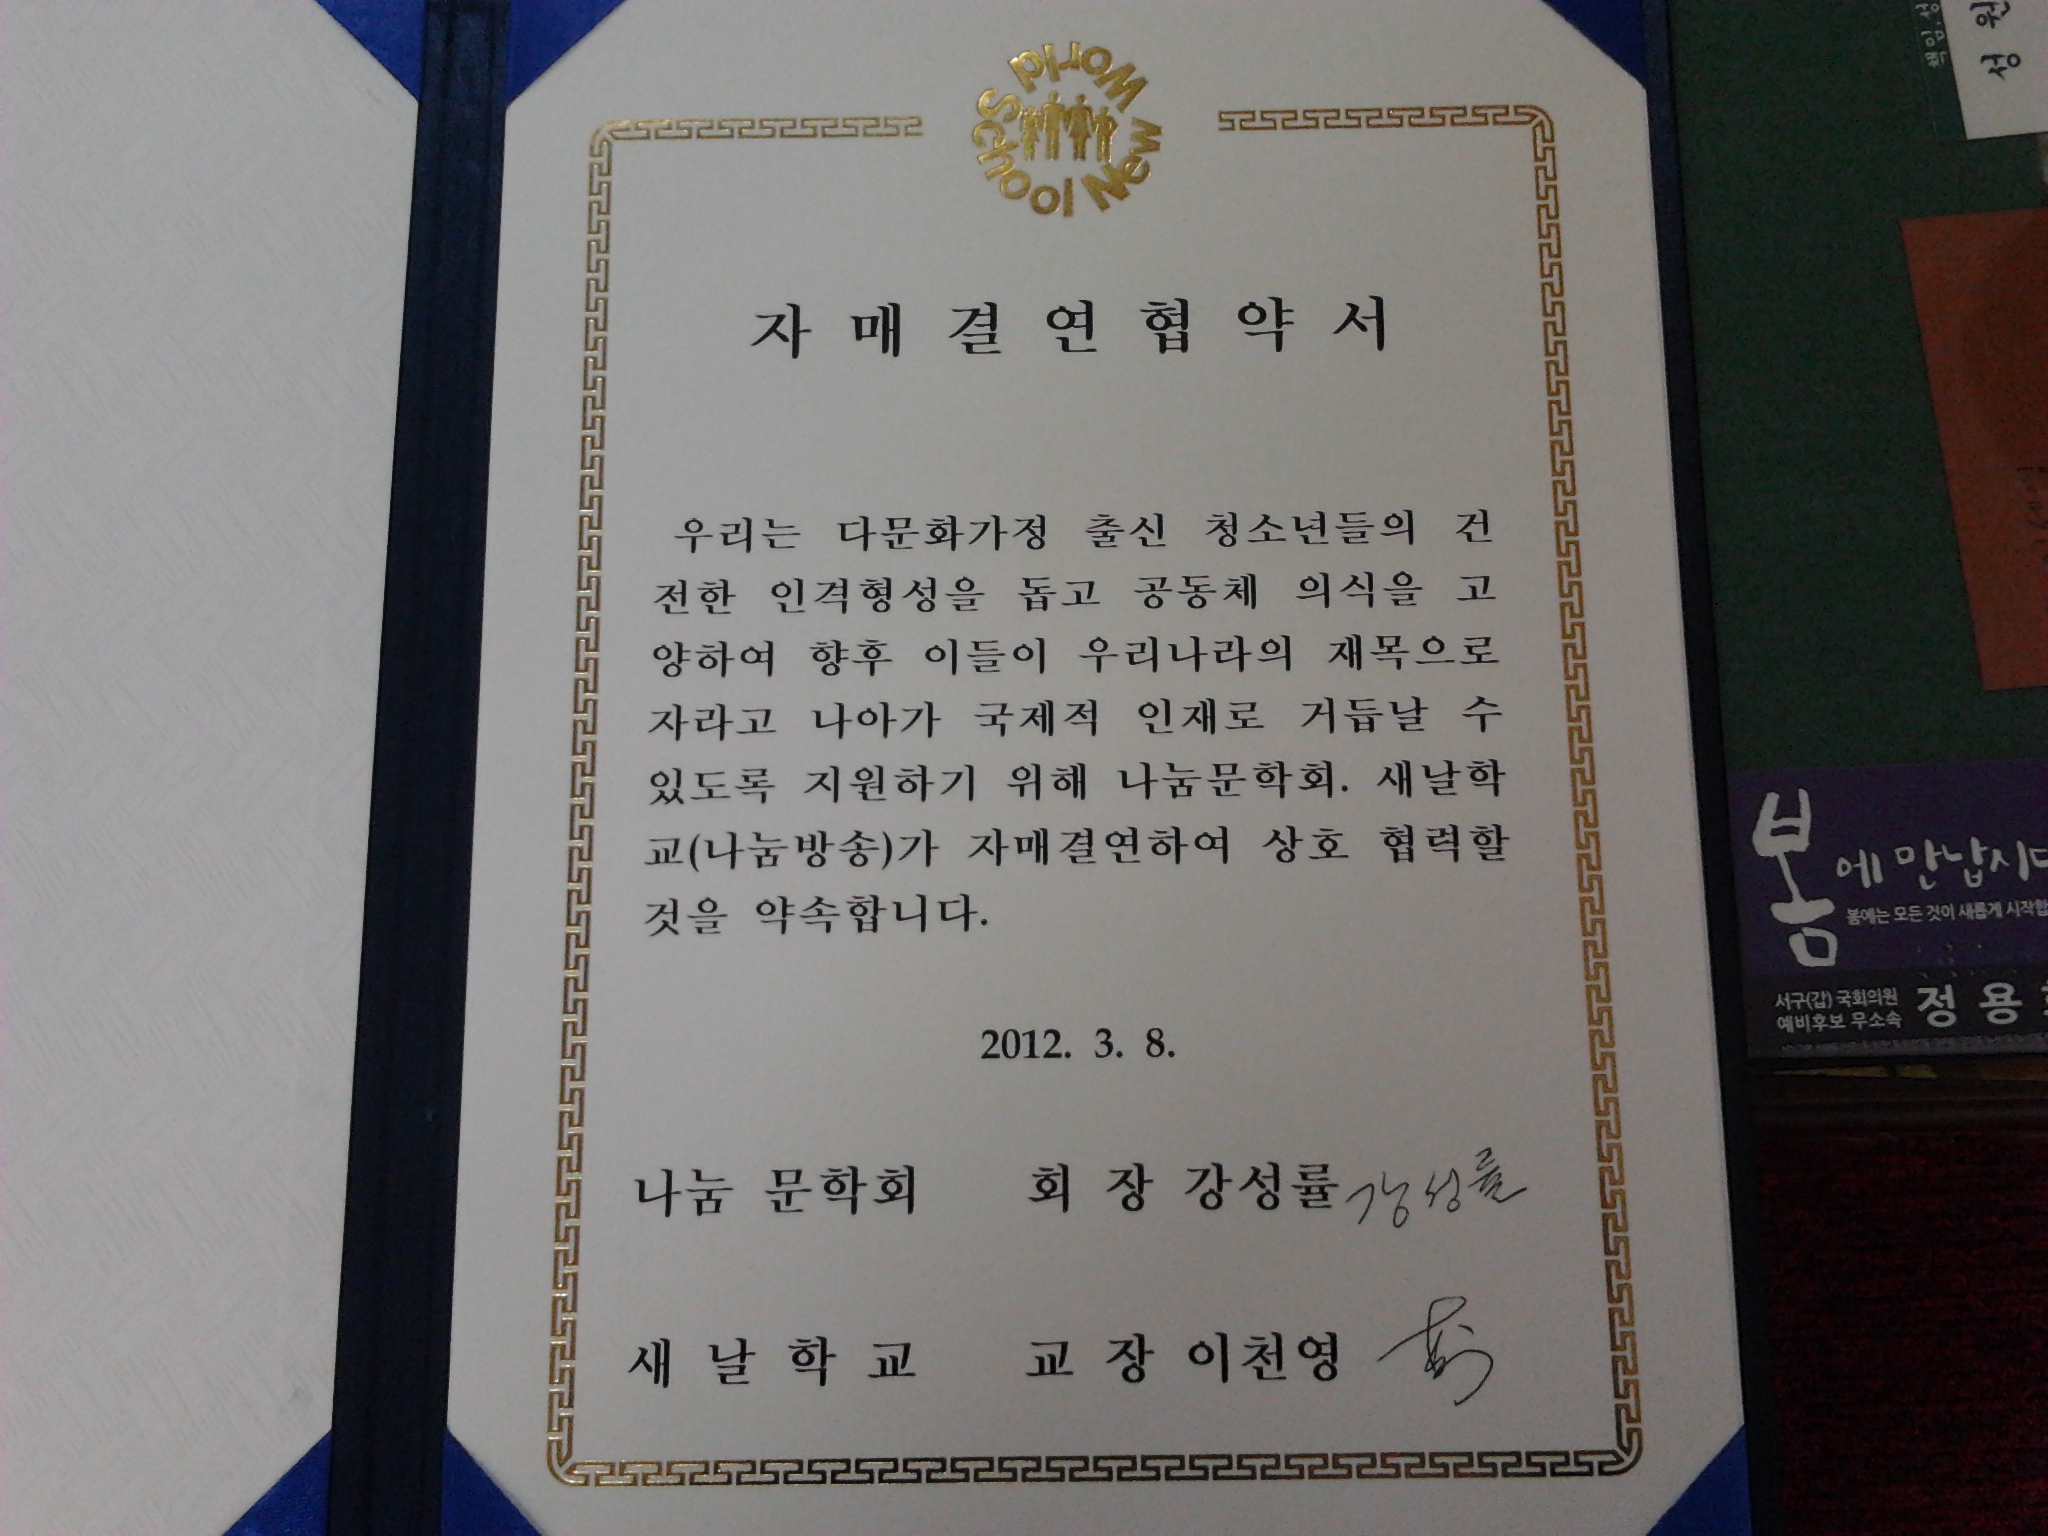 New World School
자매결연협약서
우리는 다문화가정 출신 청소년들의 건
전한 인격형성을 돕고 공동체 의식을 고
양하여 향후 이들이 우리나라의 재목으로
자라고 나아가 국제적 인재로 거듭날 수
있도록 지원하기 위해 나눔문학회. 새날학
교(나눔방송)가 자매결연하여 상호 협력할
것을 약속합니다.
2012. 3. 8.
나눔 문학회 회 장 강성률 강성률
새 날 학 교 교 장 이천영
책임.성
성 원
봄에 만납시다
봄에는 모든 것이 새롭게 시작합
서구(갑) 국회의원
예비후보 무소속
정 용